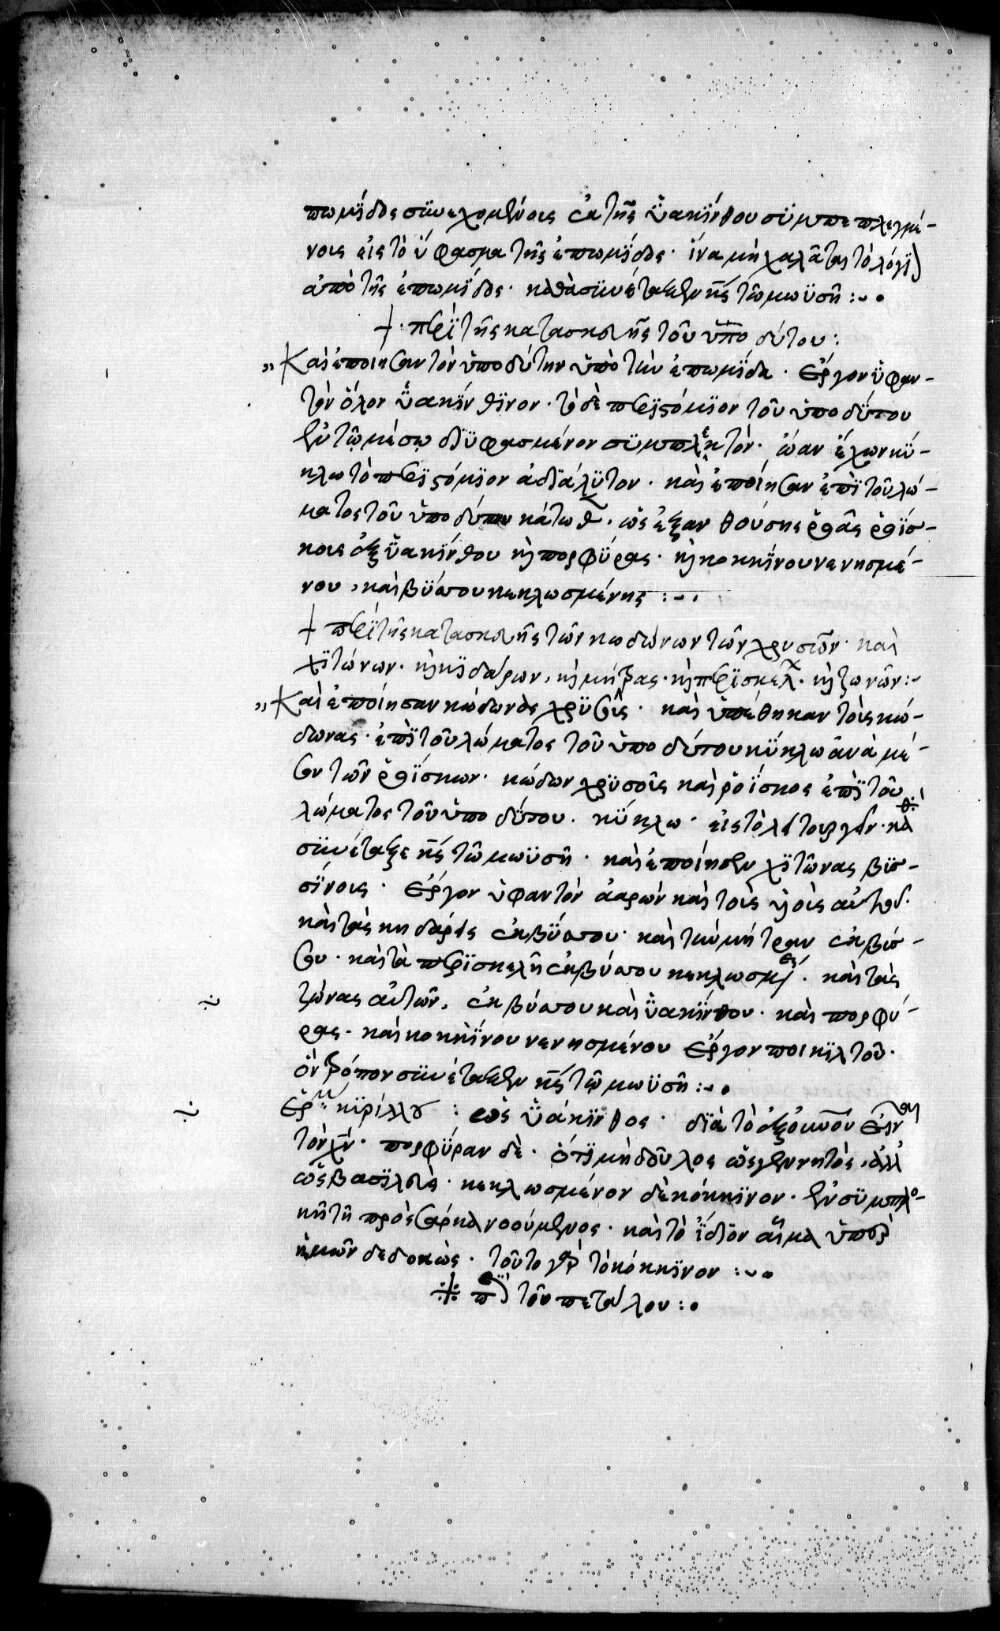 πωμίδος συνεχομένους ἐκ τῆς ὑακίνθου συμπεπλεγμέ-
νους εἰς τὸ ὕφασμα τῆς ἐπωμίδος· ἵνα μὴ χαλᾶται τὸ λόγιον
ἀπὸ τῆς ἐπωμίδος· καθὰ συνέταξεν κς τῶ μωϋσῆ :~ •
+ · περὶ τῆς κατασκευῆς τοῦ ὑποδύτου :
„ Καὶ ἐποίησαν τὸν ὑποδύτην ὑπὸ τὴν ἐπωμίδα · ἔργον ὑφαν-
τὸν ὅλον ὑακίνθινον · τὸ δὲ περιστόμιον τοῦ ὑποδύτου
ἐν τῶ μέσω διϋφασμένον συμπλεκτόν· ὤαν ἔχων κύ-
κλω τὸ περιστόμιον ἀδιάλυτον · καὶ ἐποίησαν ἐπὶ τοῦ λώ-
ματος τοῦ ὑποδύτου κάτωθεν · ὡς ἐξανθούσης ῥοᾶς ῥοΐσ-
κους ἐξ ὑακίνθου κ πορφύρας · κ κοκκίνου νενησμέ-
νου, καὶ βύσσου κεκλωσμένης : ~ ·
+ περὶ τῆς κατασκευῆς τῶν κωδώνων τῶν χρυσῶν · καὶ
χιτώνων · κ κιδάρων, κ μήτρας · κ περισκελ · κ ζωνῶν :~
„ Καὶ ἐποίησαν κώδωνας χρυσοῦς · καὶ ὑπέθηκαν τοὺς κώ-
δωνας · ἐπὶ τοῦ λώματος τοῦ ὑποδύτου κύκλω ἀνὰ μέ-
σον τῶν ῥοΐσκων · κώδων χρυσοῦς καὶ ῥοΐσκος ἐπὶ τοῦ
λώματος τοῦ ὑποδύτου · κύκλω · εἰς τὸ λειτουργεῖν · καθὰ
συνέταξε κς τῶ μωϋσῆ · καὶ ἐποίησεν χιτῶνας βυσ-
σίνους · ἔργον ὑφαντὸν ἀαρὼν καὶ τοῖς υἱοῖς αὐτοῦ·
καὶ τὰς κιδάρεις ἐκ βύσσου · καὶ τὴν μήτραν ἐκ βύσ-
σου · καὶ τὰ περισκελῆ ἐκ βύσσου κεκλωσμένης · καὶ τὰς
ζώνας αὐτῶν, ἐκ βύσσου καὶ ὑακίνθου · καὶ πορφύ-
ρας · καὶ κοκκίνου νενησμένου ἔργον ποικιλτοῦ ·
ὃν τρόπον συνέταξεν κς τῶ μωϋσῆ :~ •
κυρίλλου : ὡς ὑάκινθος · διὰ τὸ ἐξ οὐνοῦ εἶναι
τὸν χν · πορφύραν δὲ · ὅτι μὴ δοῦλος ὡς γεννητὸς, ἀλλ
ὡς βασιλεύς · κεκλωσμένον δὲ κόκκινον · ἐν συμπλο-
κῆ τῆ πρὸς σάρκα νοούμενος · καὶ τὸ ἴδιον αἷμα ὑπὲρ
ἡμῶν δεδωκώς · τοῦτο γὰρ τὸ κόκκινον :~ •
※ περὶ τοῦ πετάλου : •